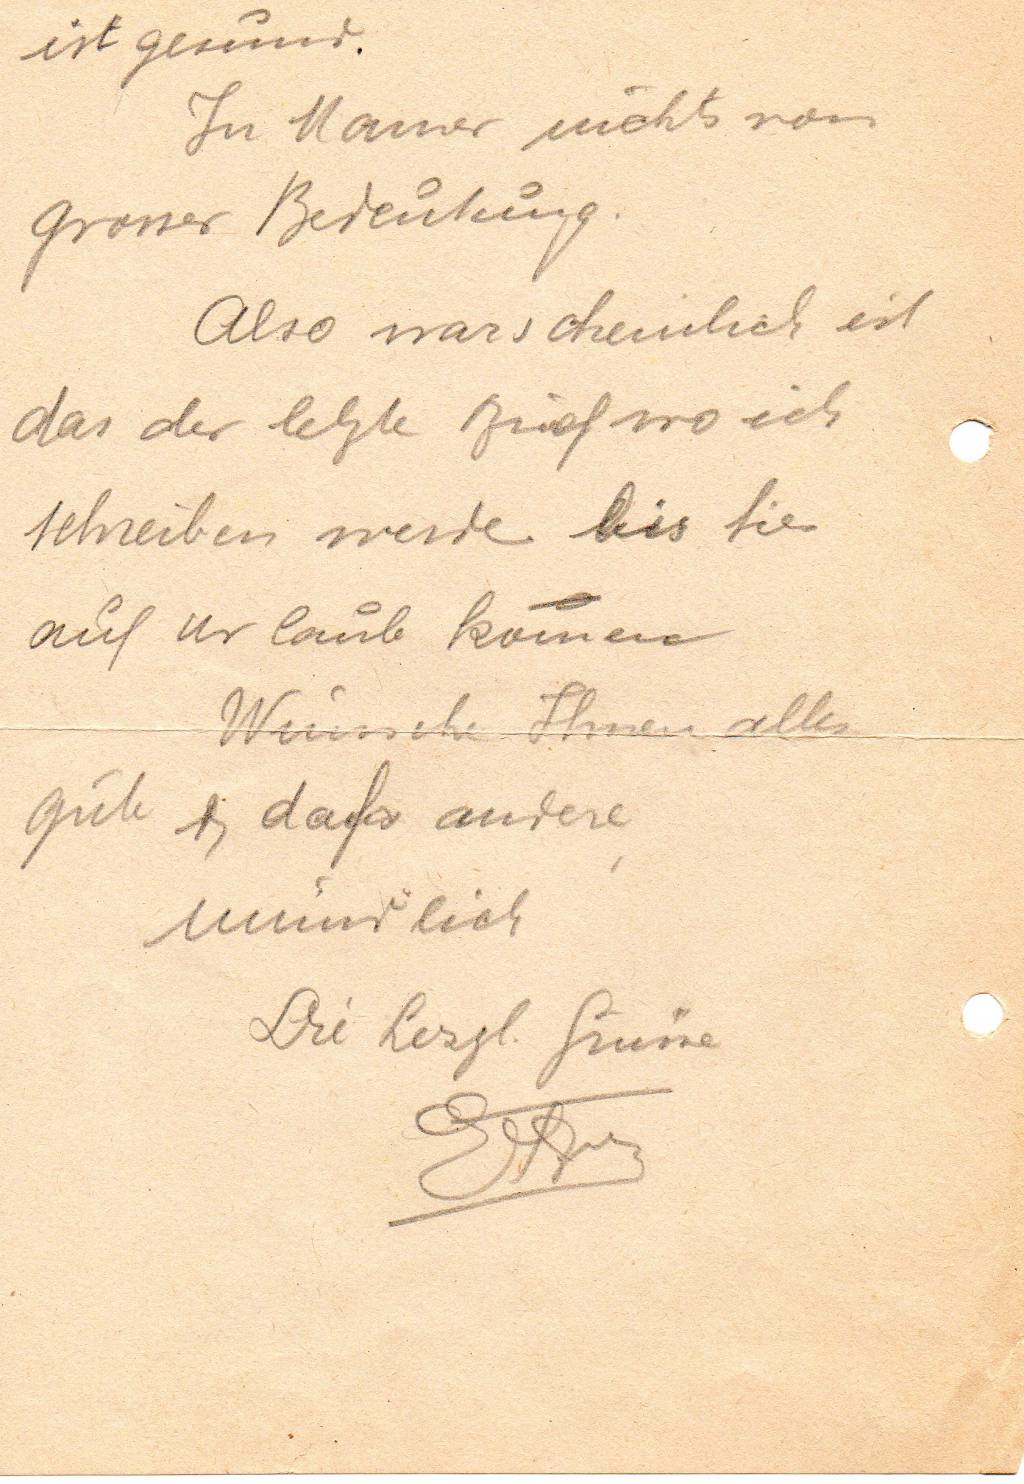 ist gesund.
In Mamer nichts von
grosser Bedeutung.
Also warscheinlich ist
das der letzte Brief wo ich
schreiben werde bis Sie
auf Urlaub komen
Wünsche Ihnen alles
gute & dafs andere,
mündlich
Die herzl. Grüsse